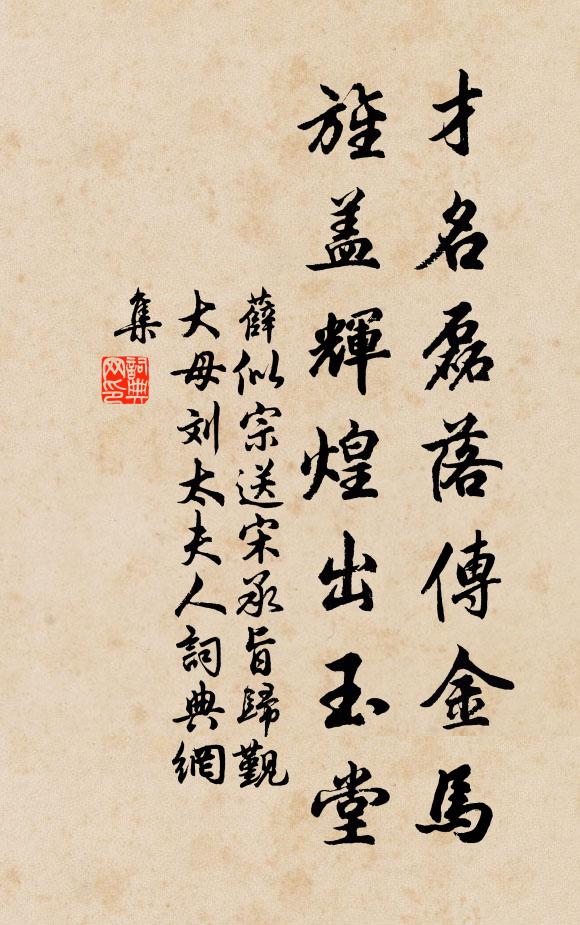 才名磊落傳金馬
旌蓋輝煌出玉堂
薛似宗送宋承旨歸觀
大母刘太夫人詞典網
集
詞典网印